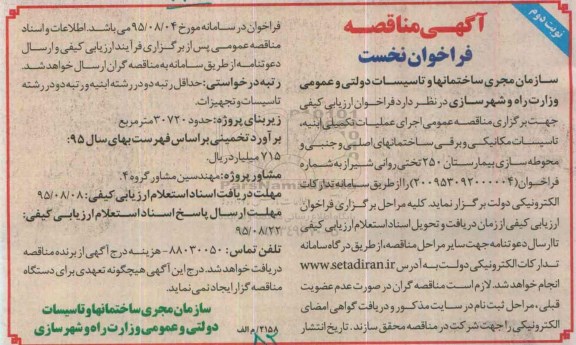 نوبت دوم
آگهی مناقصه
فراخوان نخست
سازمان مجری ساختمانها و تاسیسات دولتی و عمومی
وزارت راه و شهرسازی در نظر دارد فراخوان ارزیابی کیفی
جهت برگزاری مناقصه عمومی اجرای عملیات تکمیلی ابنیه،
تاسیسات مکانیکی و برقی ساختمانهای اصلی و جنبی و
محوطه سازی بیمارستان ۲۵۰ تختی روانی شیراز به شماره
فراخوان (۲۰۰۹۵۳۰۹۲۰۰۰۰۰۴) را از طریق سامانه تدارکات
الکترونیکی دولت برگزار نماید. کلیه مراحل برگزاری فراخوان
ارزیابی کیفی از زمان دریافت و تحویل اسناد استعلام ارزیابی کیفی
تا ارسال دعوتنامه جهت سایر مراحل مناقصه، از طریق درگاه سامانه
تدارکات الکترونیکی دولت به آدرس www.setadiran.ir
انجام خواهد شد. لازم است مناقصه گران در صورت عدم عضویت
قبلی، مراحل ثبت نام در سایت مذکور و دریافت گواهی امضای
الکترونیکی را جهت شرکت در مناقصه محقق سازند. تاریخ انتشار
فراخوان در سامانه مورخ ۹۵/۰۸/۰۴ می باشد. اطلاعات و اسناد
مناقصه عمومی پس از برگزاری فرآیند ارزیابی کیفی و ارسال
دعوتنامه از طریق سامانه به مناقصه گران ارسال خواهد شد.
رتبه درخواستی: حداقل رتبه دو در رشته ابنیه و رتبه دو در رشته
تاسیسات و تجهیزات.
زیربنای پروژه: حدود ۳۰۷۲۰ متر مربع
برآورد تخمینی بر اساس فهرست بهای سال ۹۵:
۷۱۵ میلیارد ریال.
مشاور پروژه: مهندسین مشاور گروه ۴.
مهلت دریافت اسناد استعلام ارزیابی کیفی: ۹۵/۰۸/۰۸
مهلت ارسال پاسخ اسناد استعلام ارزیابی کیفی:
۹۵/۰۸/۲۲
تلفن تماس: ۸۸۰۳۰۰۵۰- هزینه درج آگهی از برنده مناقصه
دریافت خواهد شد. درج این آگهی هیچگونه تعهدی برای دستگاه
مناقصه گزار ایجاد نمی نماید.
سازمان مجری ساختمانها و تاسیسات
دولتی و عمومی وزارت راه و شهرسازی
۲۱۵۸/م الف